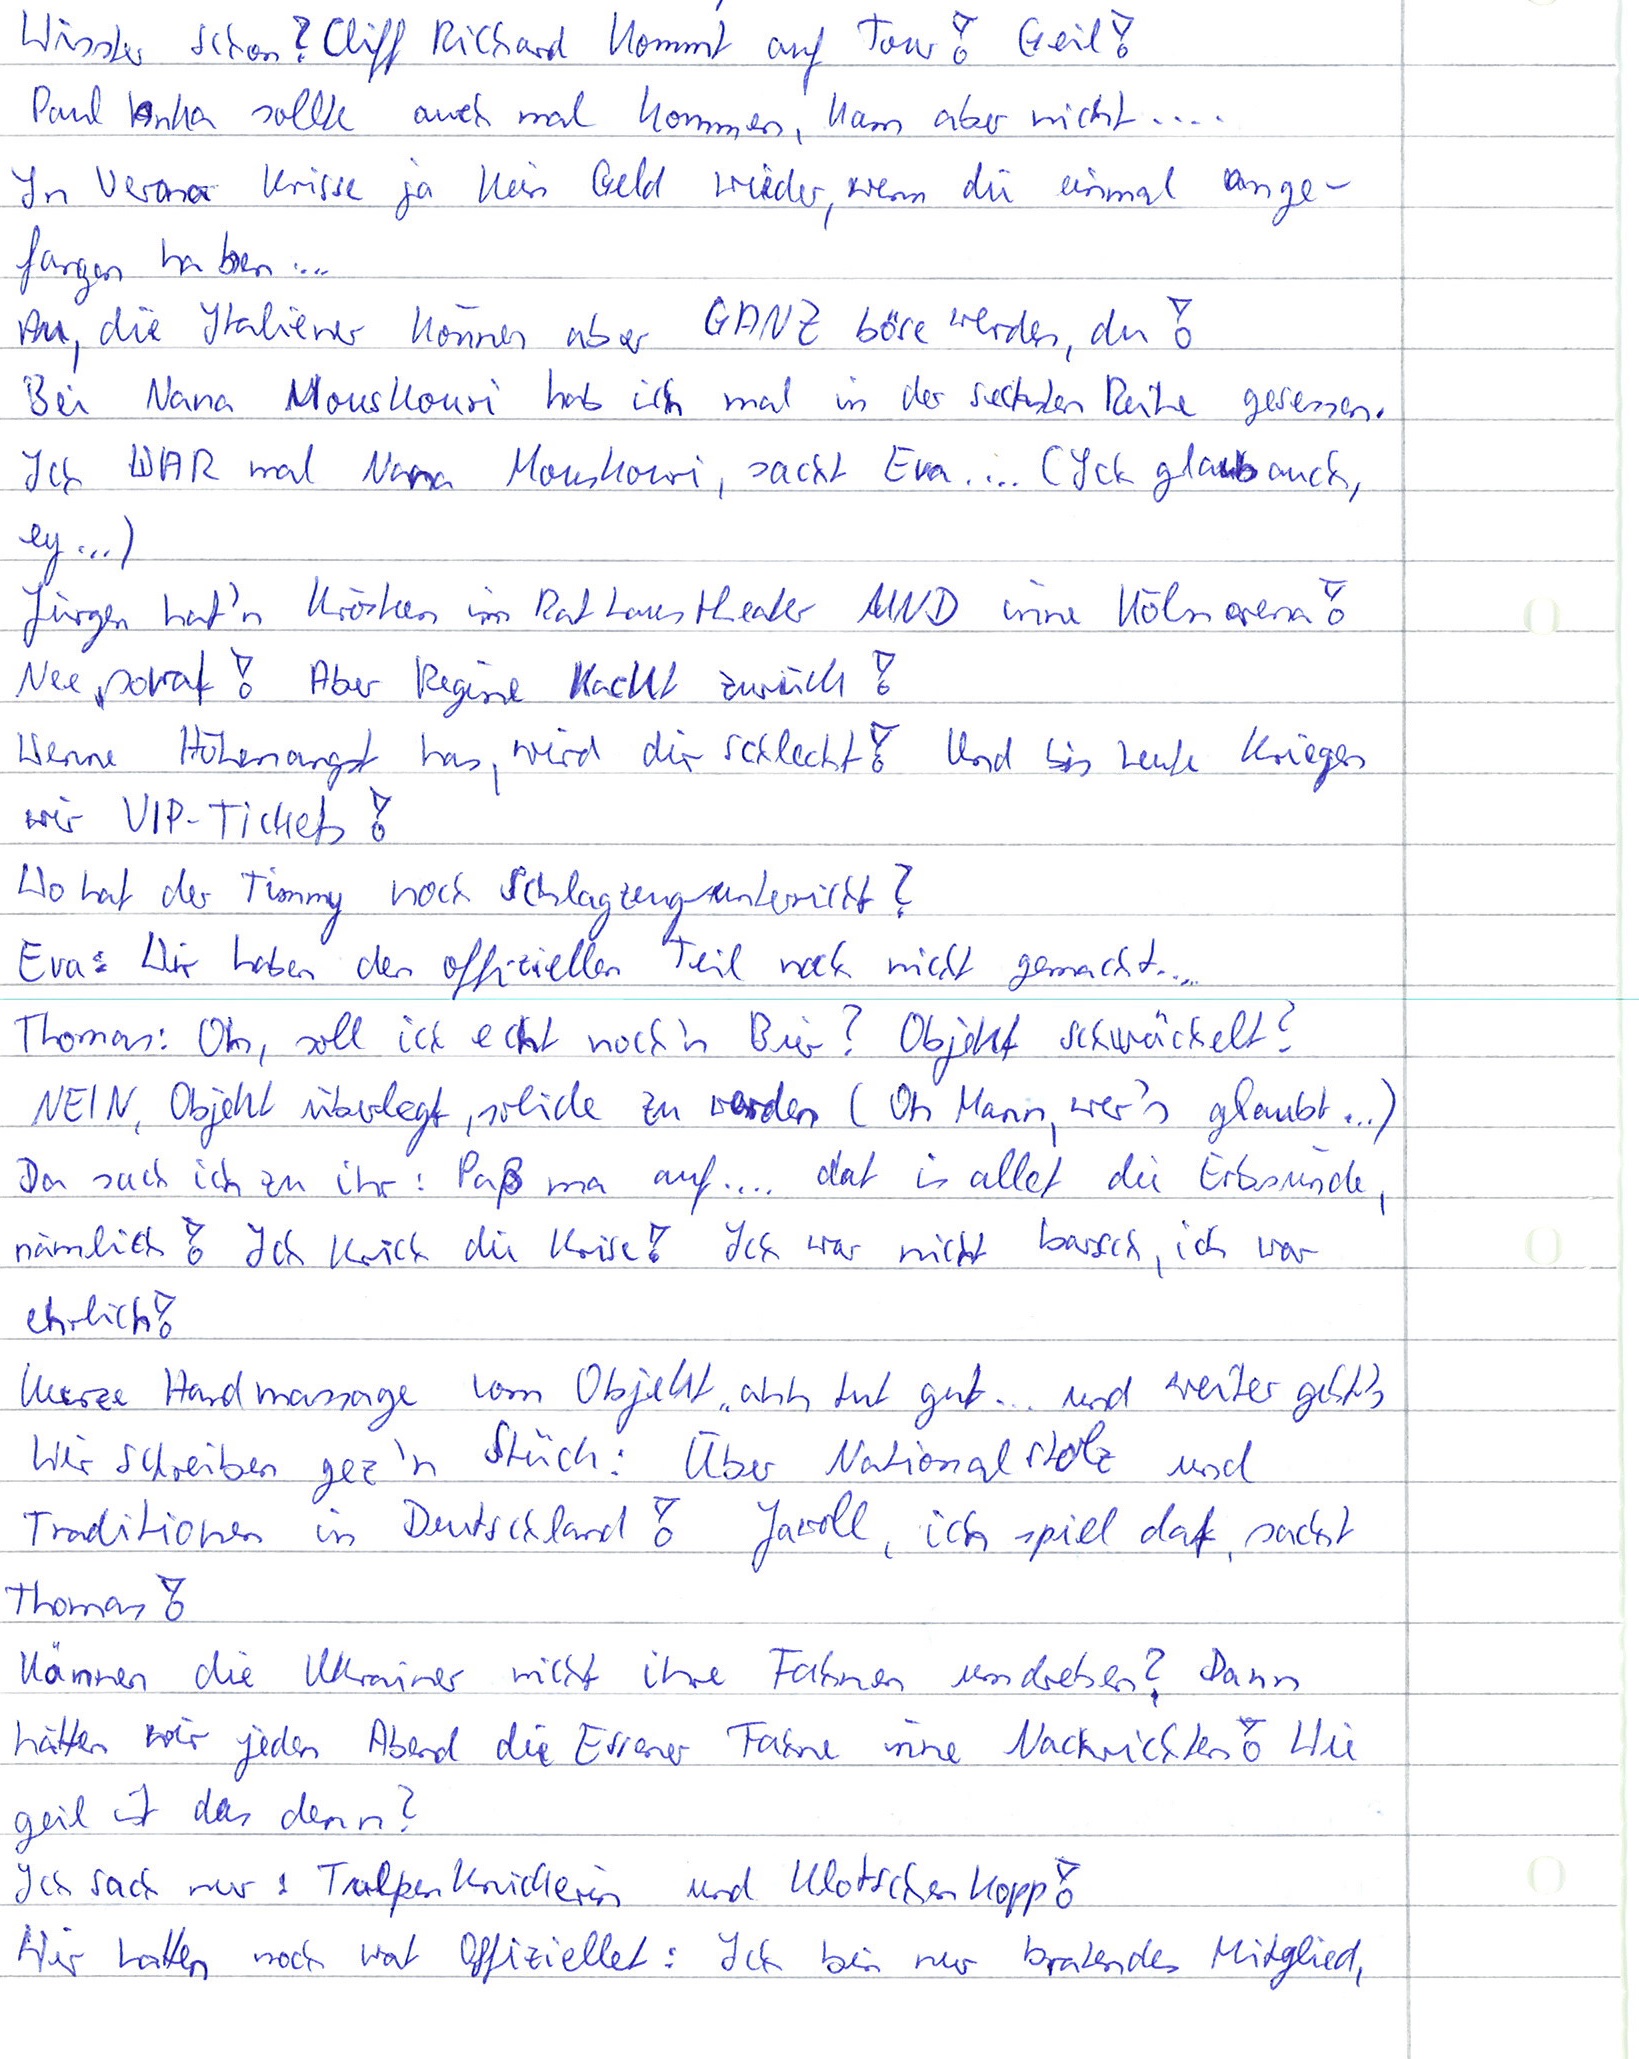 Wisster schon? Cliff Richard kommt auf Tour! Geil!
Paul Anka sollte auch mal kommen, kam aber nicht....
In Verona krisse ja kein Geld wieder, wenn die einmal ange-
fangen haben...
Au, die Italiener können aber GANZ böse werden, du!
Bei Nana Mouskouri hab ich mal in der sechsten Reihe gesessen.
Ich WAR mal Nana Mouskouri, sacht Eva.... (Ick glaub auch,
ey...)
Jürgen hat'n Krösken im Rathaustheater UND inne Kölnarena!
Nee, sowat! Aber Regine kackt zurück!
Wenne Höhenangst has, wird dir schlecht! Und bis heute kriegen
wir VIP-Tickets!
Wo hat der Timmy noch Schlagzeugunterricht?
Eva: Wir haben den offiziellen Teil noch nicht gemacht...
Thomas: Oh, soll ich echt noch'n Bier? Objekt schwächelt?
NEIN, Objekt überlegt, solide zu werden (Oh Mann, wer's glaubt...)
Da sach ich zu ihr: Paß ma auf.... dat is allet die Erbsünde,
nämlich! Ich krich die Krise! Ich war nicht barsch, ich war
ehrlich!
Kurze Handmassage vom Objekt.. ahh tut gut... und weiter geht's
Wir schreiben gez'n Stück: Über Nationalstolz und
Traditionen in Deutschland! Jawoll, ich spiel dat, sacht
Thomas!
Können die Ukrainer nicht ihre Fahnen umdrehen? Dann
hätten wir jeden Abend die Essener Fahne inne Nachrichten! Wie
geil is das denn?
Ich sach nur: Tulpenknickerin und Klotschenkopp!
Wir hatten noch wat Offiziellet: Ich bin nur bratendes Mitglied,